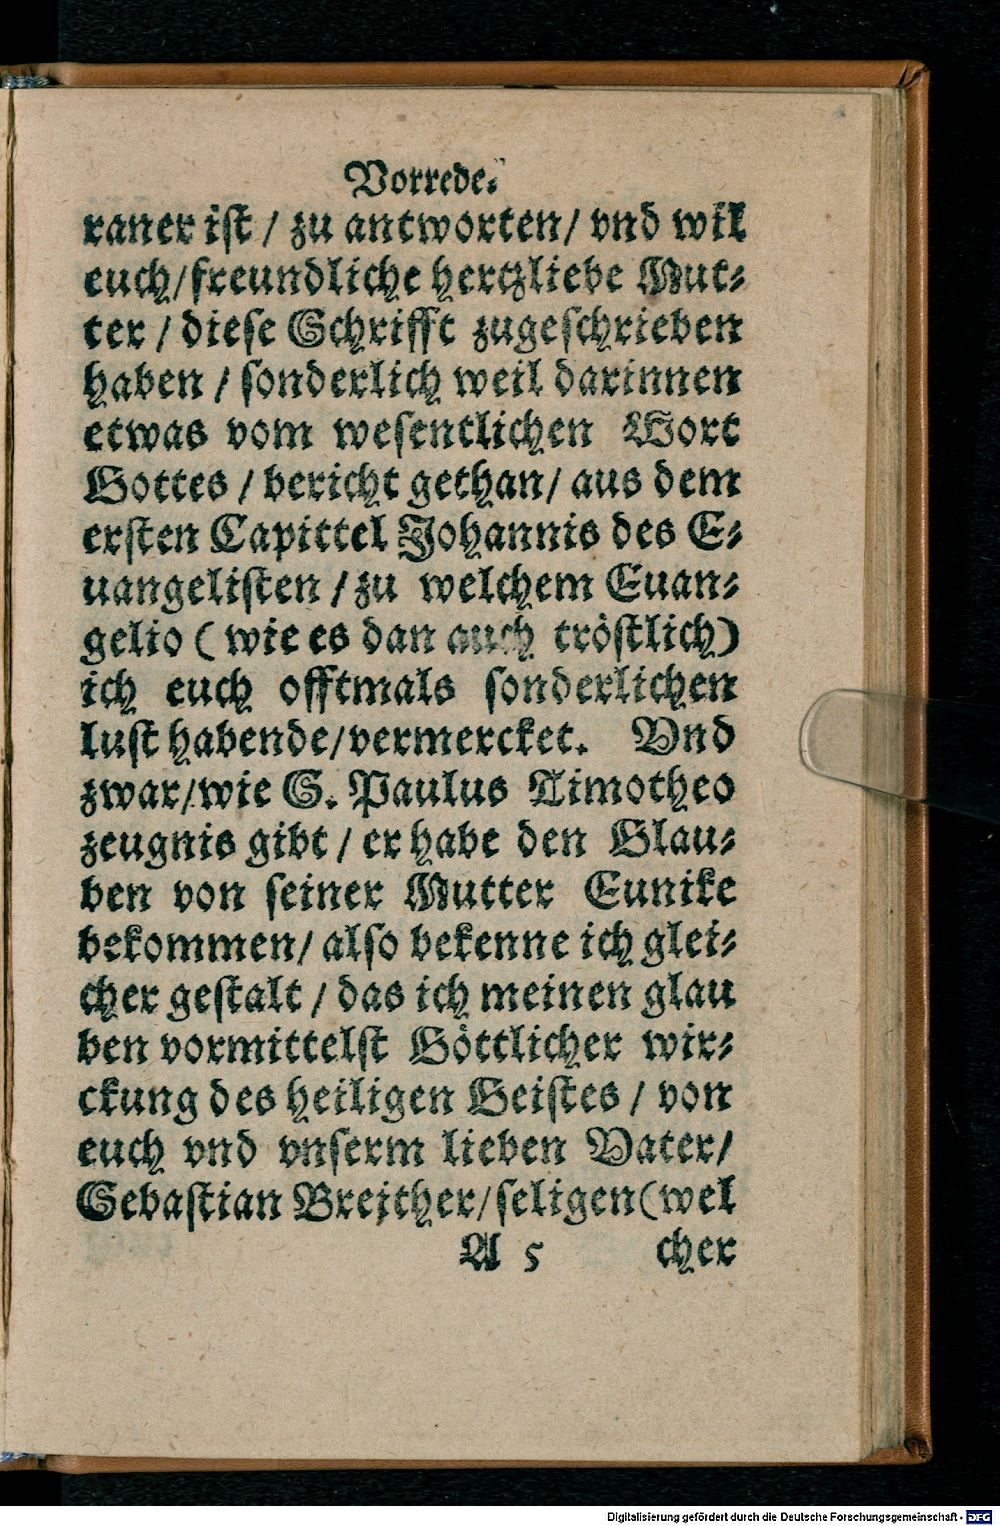 Vorrede.
raner ist / zu antworten / vnd wil
euch / freundliche hertzliebe Mut⸗
ter / diese Schrifft zugeschrieben
haben / sonderlich weil darinnen
etwas vom wesentlichen Wort
Gottes / bericht gethan / aus dem
ersten Capittel Johannis des E⸗
uangelisten / zu welchem Euan⸗
gelio ( wie es dan auch tröstlich )
ich euch offtmals sonderlichen
lust habende / vermercket. Vnd
zwar / wie S. Paulus Timotheo
zeugnis gibt / er habe den Glau⸗
ben von seiner Mutter Eunike
bekommen / also bekenne ich glei⸗
cher gestalt / das ich meinen glau
ben vormittelst Göttlicher wir⸗
ckung des heiligen Geistes / von
euch vnd vnserm lieben Vater /
Sebastian Brejther / seligen ( wel
A 5 cher
Digitalisierung gefördert durch die Deutsche Forschungsgemeinschaft - DFG